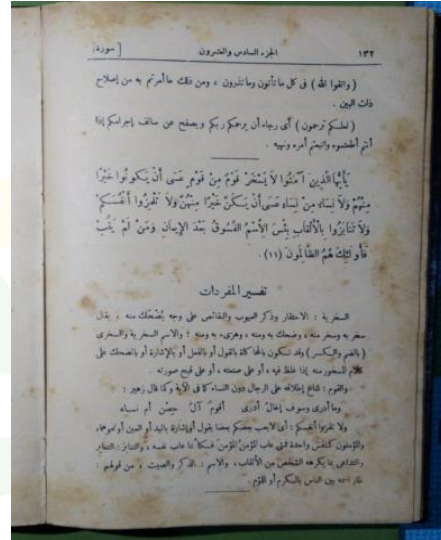 ١٣٢ الجزء السادس والعشرون [ سورة
( واتقوا الله ) فى كل ما تأتون وما تذرون ، ومن ذلك ما أمرتم به من إصلاح
ذات البين .
( لعلكم ترحمون ) أى رجاء أن يرحمكم ربكم ويصفح عن سالف إجرامكم إذا
أنتم أطعتموه واتبعتم أمره ونهيه .
يَأَيُّهَا الَّذِينَ آمَنُوا لاَ يَسْخَرْ قَوْمٌ مِنْ قَوْمٍ عَسَى أَنْ يَكُونُوا خَيْرًا
مِنْهُمْ وَلاَ نِسَاءٌ مِنْ نِسَاءٍ عَسَى أَنْ يَكُنَّ خَيْرًا مِنْهُنَّ وَلاَ تَلْمِزُوا أَنْفُسَكُمْ
وَلاَ تَنَابَزُوا بِالْأَلْقَابِ بِئْسَ الاِسْمُ الْفُسُوقُ بَعْدَ الْإِيمَانِ وَمَنْ لَمْ يَتُبْ
فَأُولٰئِكَ هُمُ الظَّالِمُونَ (١١) .
تفسير المفردات
السخرية : الاحتقار وذكر العيوب والنقائص على وجه يُضْحَك منه ، يقال
سخر به وسخر منه ، وضحك به ومنه ، وهزىء به ومنه ؛ والاسم السخرية والسخرى
( بالضم والكسر ) وقد تكون بالمحاكاة بالقول أو بالفعل أو بالإشارة أو بالضحك على
كلام المسخور منه إذا غلط فيه ، أو على صنعته ، أو على قبح صورته .
والقوم : شاع إطلاقه على الرجال دون النساء كما فى الآية وكما قال زهير :
وما أدرى وسوف إخالُ أدرى أقوم آلُ حِصْن أم نساء
ولا تلمزوا أنفسكم : أى لا يعب بعضكم بعضا بقول أو إشارة باليد أو العين أو نحوهما ،
والمؤمنون كنفس واحدة فمتى عاب المؤمنُ المؤمنَ فكأنما عاب نفسه ، والتنابز : التعاير
والتداعى بما يكرهه الشخص من الألقاب ، والاسم : الذكر والصيت ، من قولهم :
طار اسمه بين الناس بالكرم أو اللؤم .